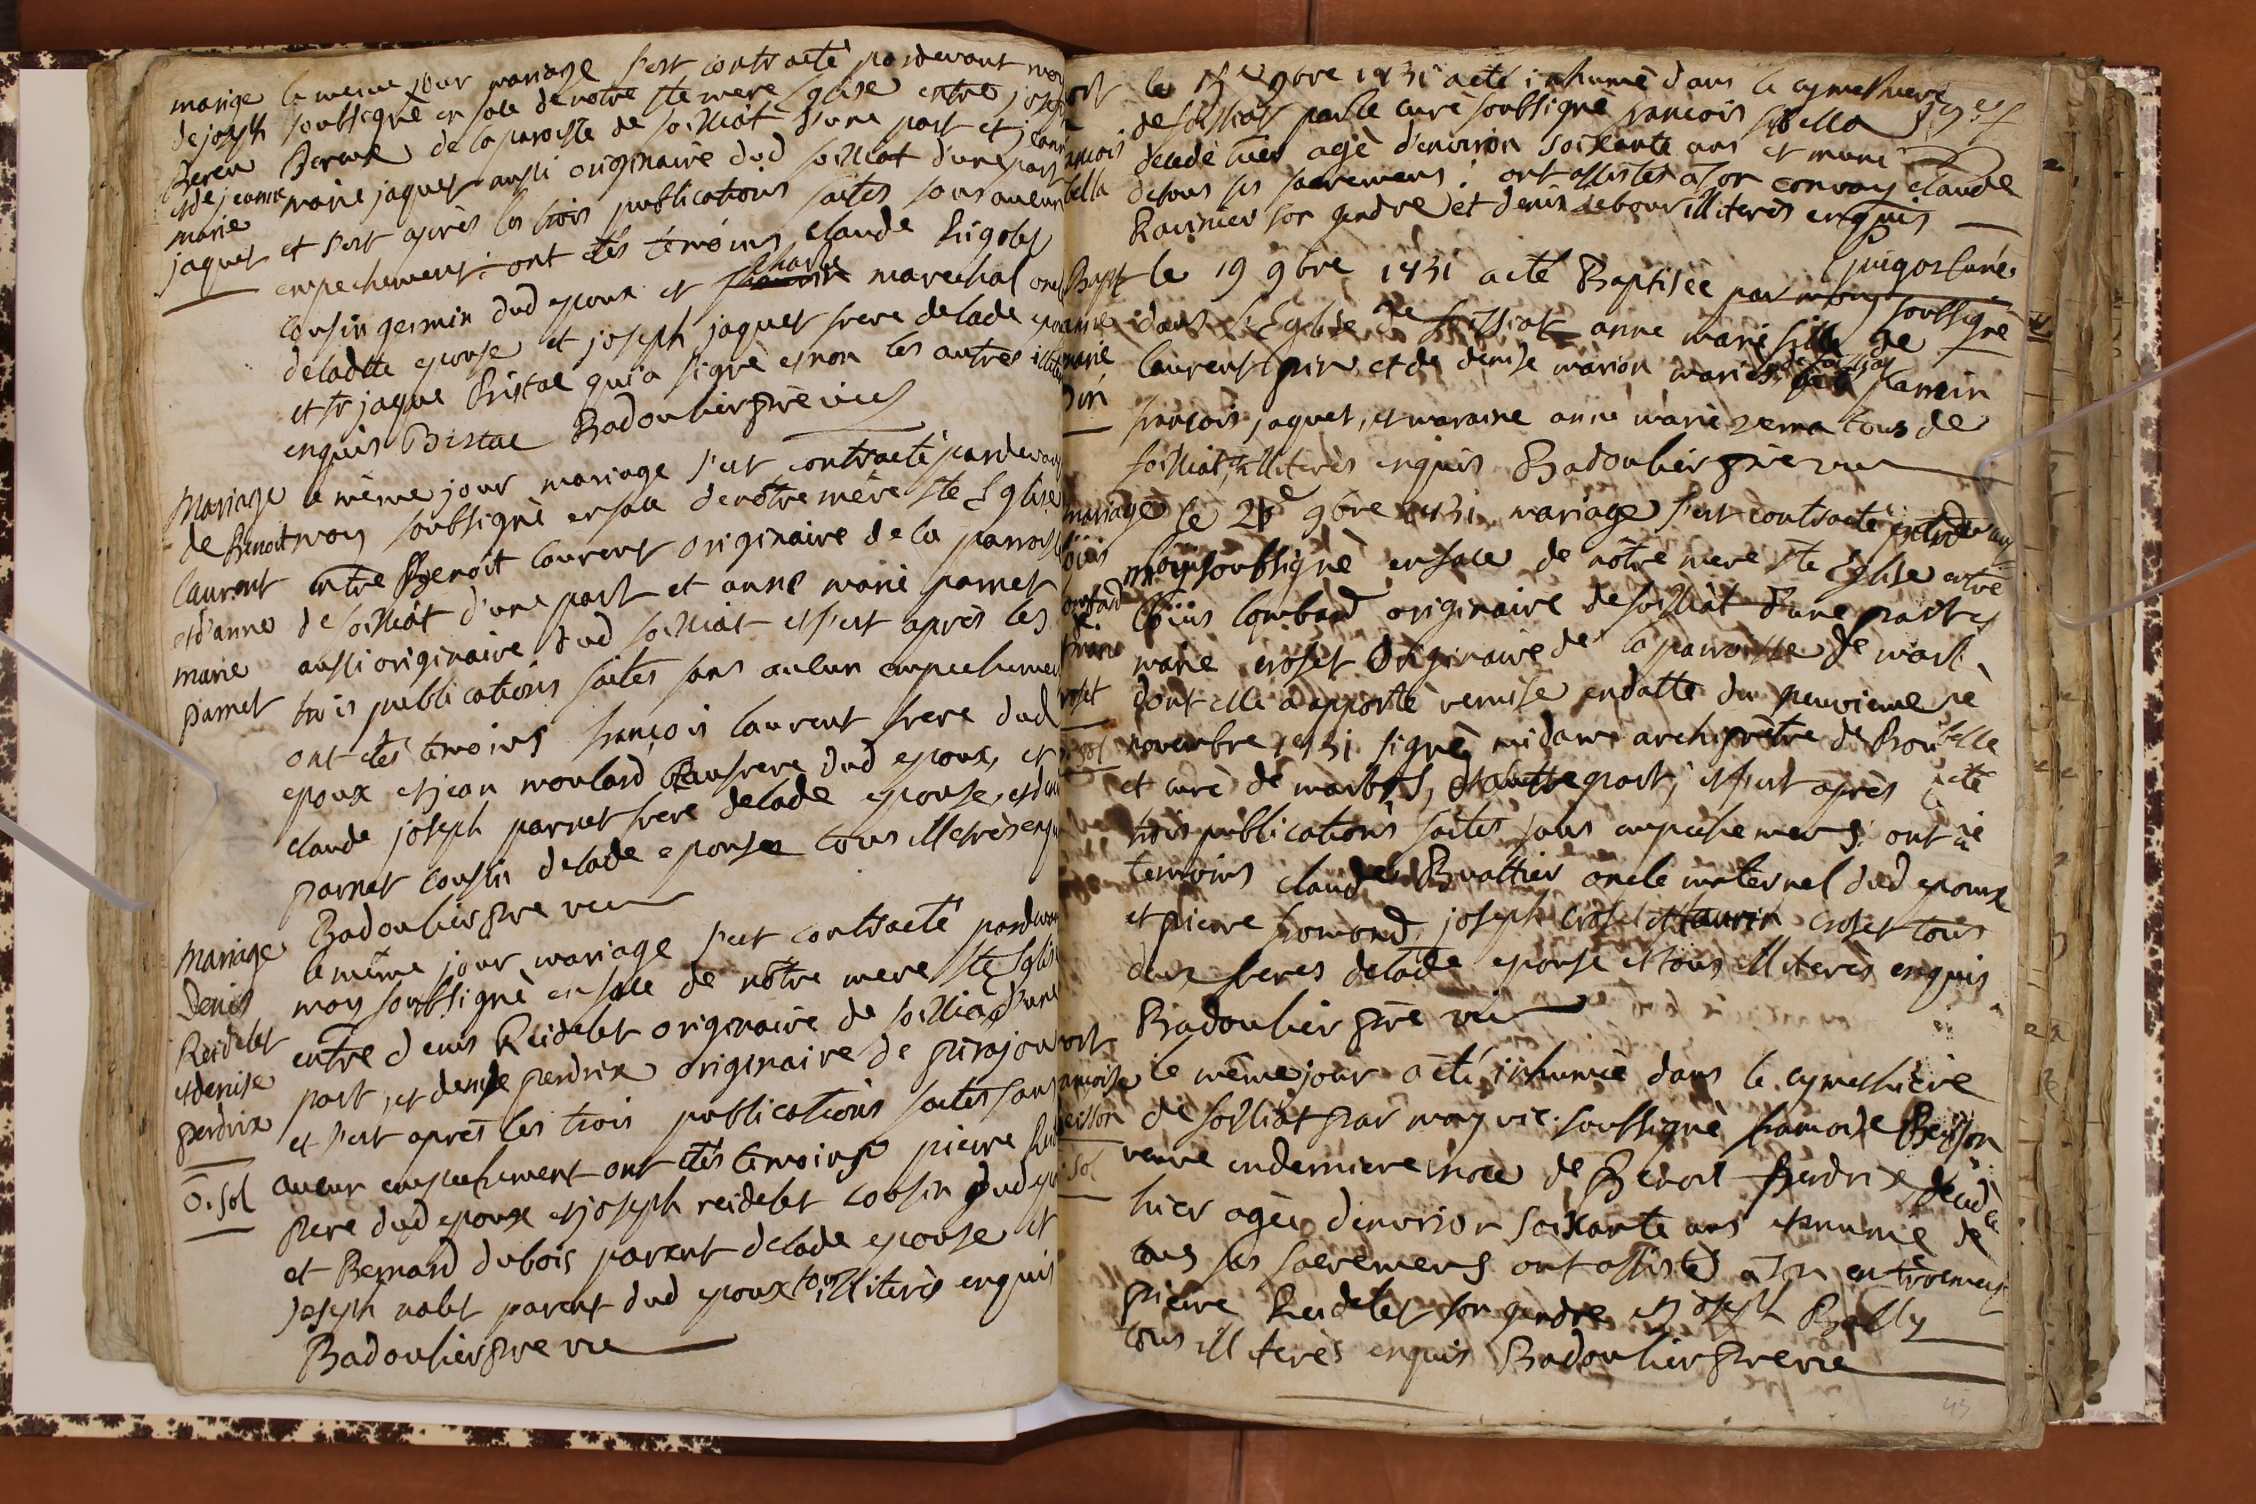 marige
de joseph
Bereu
et de jeanne
marie
jaquet
le meme jour mariage s'est contracté pardevant moy
soubsigné en face de notre ste mere Eglise entre joseph
Bereux de la paroisse de soilliat d'une part et jeanne
marie jaquet aussi originaire dud soilliat d'une part
et s'est après les trois publications faites sans aucun
empechement: ont etés temoins claude Rigolet
cousin germin dud epoux et charle marechal oncle
deladtte epouse et joseph jaquet frere delade epouse
et sr jaque Bistac qui a signé et non les autres
enquis Bistac Badoulier prê vic
Mariage
de Benoit
laurent
et d'anne
marie
parnet
le même jour mariage s'est contracté pardevant
moy soubsigné en face de nôtre mère ste Eglise
entre Benoit laurent originaire de la parroisse
de soilliat d'une part et anne marie parnet
aussi originaire dud soilliat et s'est après les
trois publications faites sans aucun empechement
ont etés temoins françois laurent frere dud
epoux et jean moulard Beaufrere dud epoux, et
claude joseph parnet frere delade epouse, et
parnet cousin delade epouse tous illeterès enquis
Badoulier pre vic
Mariage
Denis
Reidelet
et denise
perdrix
o. sol
le même jour mariage s'est contracté pardevant
moy soubsigné en face de nôtre mere ste Eglise
entre denis Reidelet originaire de soilliat d'une
part, et denise perdrix originaire de pirajou
et s'est après les trois publications faites sans
aucun empechement ont etés temoins pierre
pere dud epoux et joseph reidelet cousin dud
et Bernard dubois parent delade epouse et
joseph nalet parent dud epoux tous illiterès enquis
Badoulier pre vic
le 9bre 1731 a eté inhumé dans le cymethiere
de soilliat par le curé soubsigné francois Sibella
decedé hier agé d'environ soixante ans et muni
de tous ses sacremens: ont assistès a son convoy claude
Ravinier son gendre et denis Lebour illiterès enquis
puigos curé
Bapt
anne
marie
pin
le 19 9bre 1731 a eté Baptisée par moy soubsigné
dans l'Eglise de soilliat anne marie fille de
laurent pin et de denise marion mariès parrein
françois jaquet, et maraine anne marie verna tous de
soilliat illiterès enquis Badoulier prê vic
mariage
loüis
lombard
et
marie
croset
sol
le 9bre 1731 mariage s'est contracté pardevant
moy soubsigné en face de nôtre mere ste Eglise entre
loüis lombard originaire de soilliat d'une part et
marie croset originaire de la parroisse de
dont elle a apporté remise en datte du neuvieme
novembre 1731 signé midan archiprêtre de
et curé de d'autre part, et s'est après
trois publications faites sans empechement: ont eté
temoins claude Buattier oncle maternel dud epoux
et pierre homond, joseph croset et laurin croset tous
deux freres delade epouse et tous illiterès enquis
Badoulier prê vic
le même jour a été inhumée dans le cymethière
de soilliat par moy vic. soubsigné francoise Beisson
veuve en derniere noce de Benoit perdrix, decedée
hier agée d'environ soixante ans et munie de
tous ses sacremens ont assistés a son enterrement
pierre Reidelet son gendre et joseph Bally
tous illiterès enquis Badoulier pre vic
43